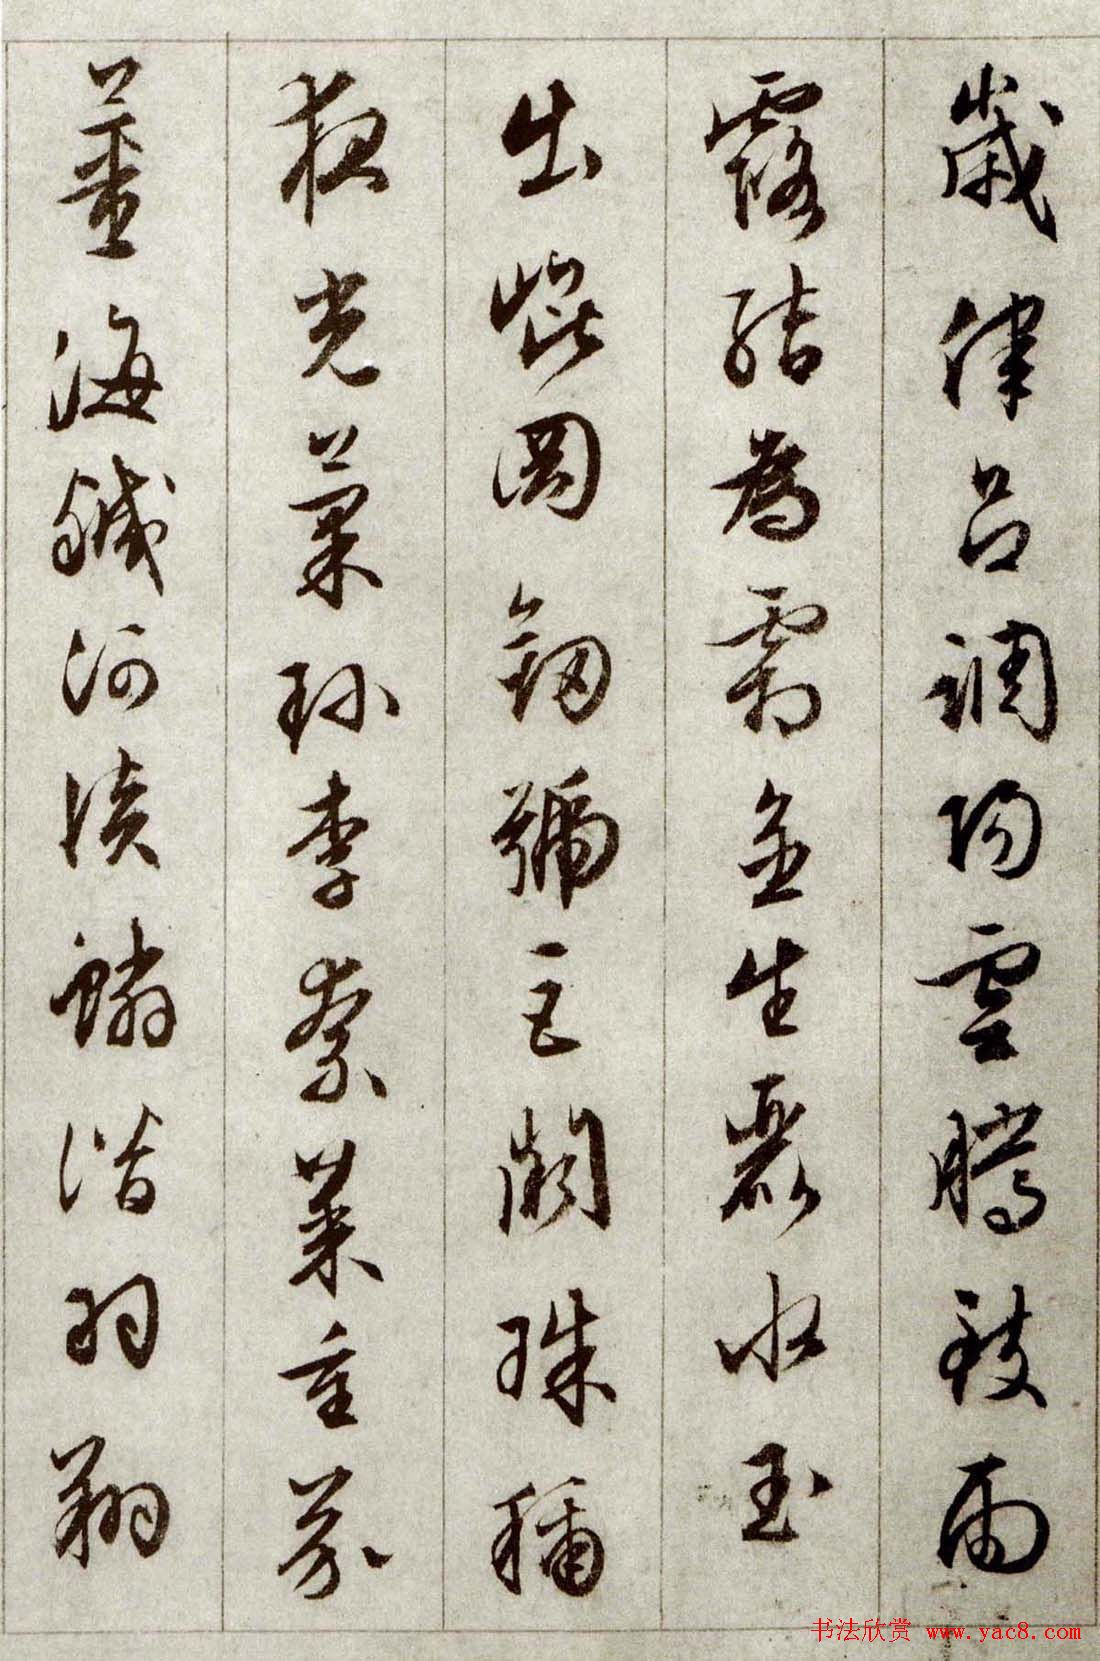 歲律呂調陽雲騰致雨
露結為霜金生麗水玉
出崑岡劍號巨闕珠稱
夜光菓珍李柰菜重芥
薑海鹹河淡鱗潛羽翔
书法欣赏 www.yac8.com